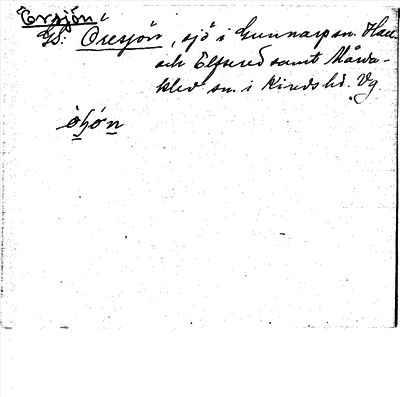 Öresjön,
GS: Öresjön, sjö i Gunnarps sn. Hall.
och Elfsered samt Mårda-
klev sn. i Kinds hd. Vg.
òhó̱ṉ